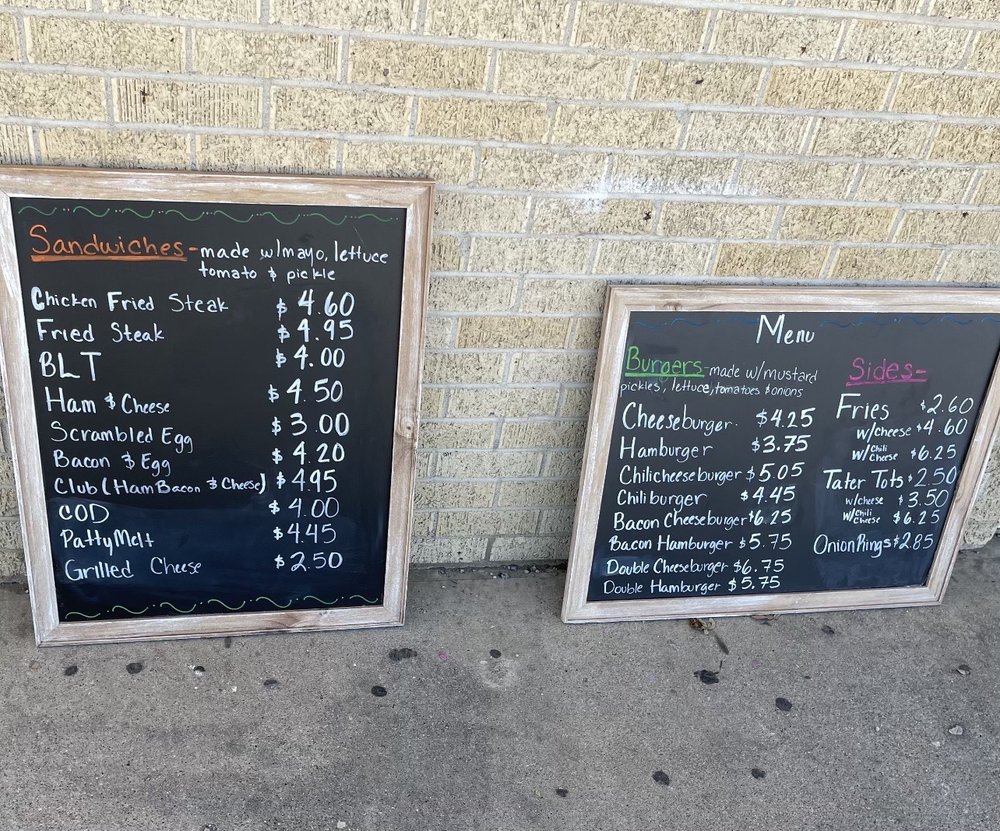 Sandwiches - made w/mayo, lettuce
tomato & pickle
Chicken Fried Steak $4.60
Fried Steak $4.95
BLT $4.00
Ham & Cheese $4.50
Scrambled Egg $3.00
Bacon & Egg $4.20
Club (Ham Bacon & Cheese) $4.95
COD $4.00
Patty Melt $4.45
Grilled Cheese $2.50
Menu
Burgers - made w/mustard
pickles, lettuce, tomatoes & onions
Cheeseburger. $4.25
Hamburger $3.75
Chilicheeseburger $5.05
Chiliburger $4.45
Bacon Cheeseburger $6.25
Bacon Hamburger $5.75
Double Cheeseburger $6.75
Double Hamburger $5.75
Sides-
Fries $2.60
w/cheese $4.60
w/Chili Cheese $6.25
Tater Tots $2.50
w/cheese $3.50
w/Chili Cheese $6.25
Onion Rings $2.85